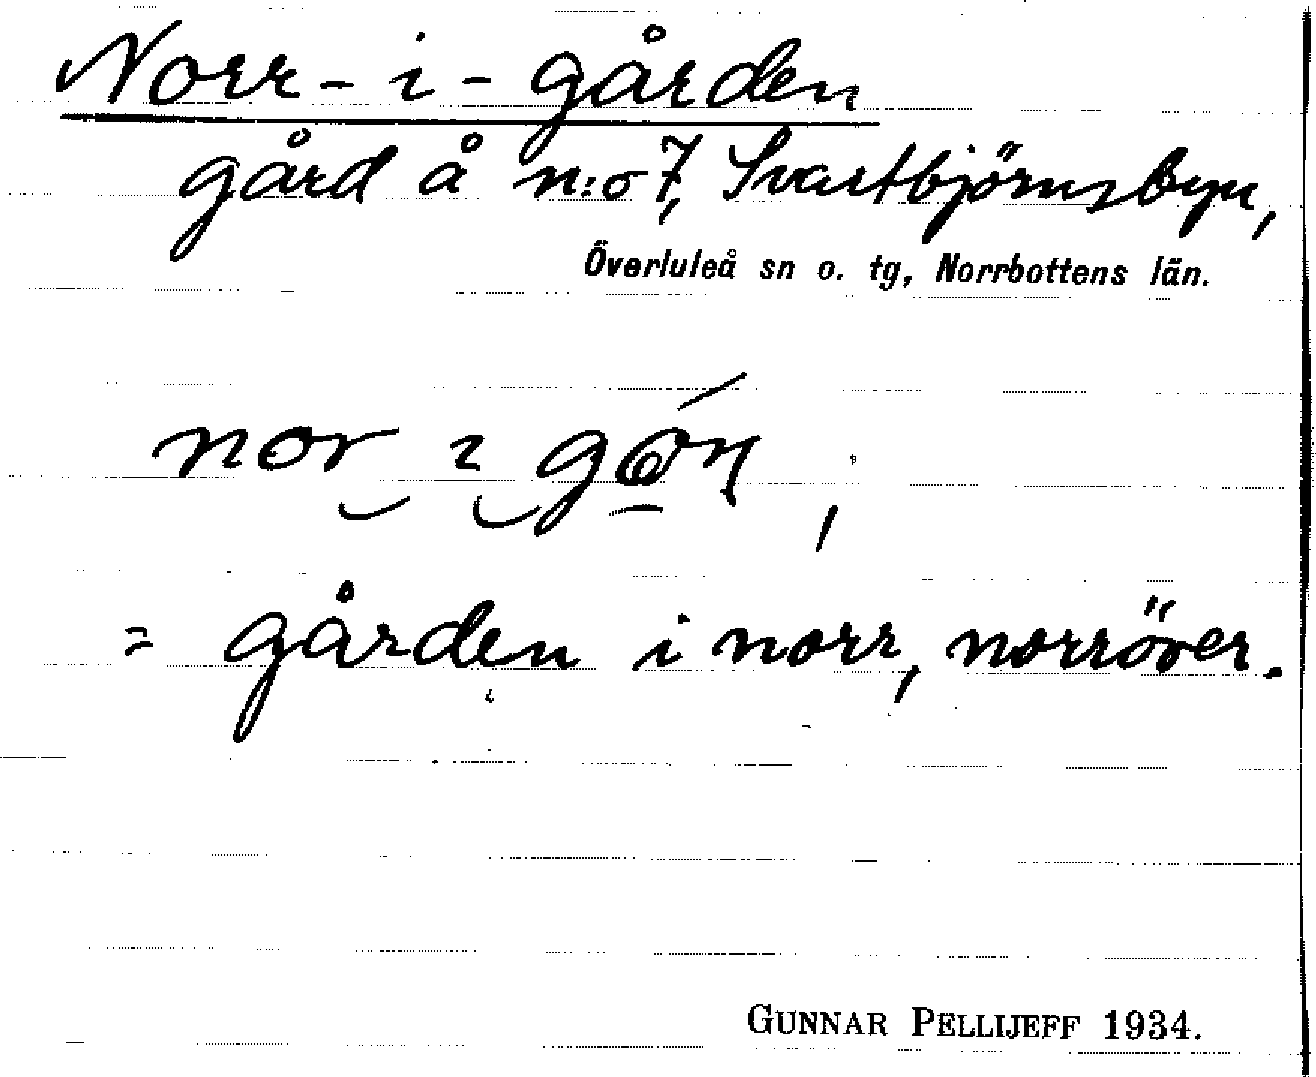 Norr-i-gården
gård å n:o 7, Svartbjörnsbyn,
Överluleå sn o. tg, Norrbottens län.
nor i
= gården i norr, norröver.
GUNNAR PELLIJEFF 1934.